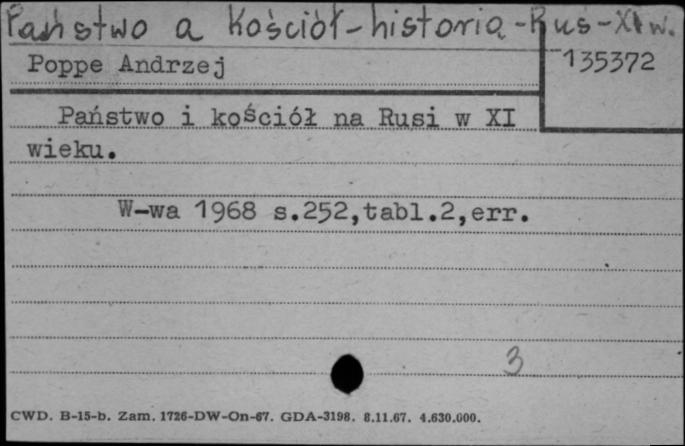 Państwo a kościół-historia-Ruś-XI w.
Poppe Andrzej
135372
Państwo i kościół na Rusi w XI
wieku.
W-wa 1968 s.252,tabl.2,err.
3
CWD. B-15-b. Zam. 1726-DW-On-67. GDA-3198. 8.11.67. 4.630.000.